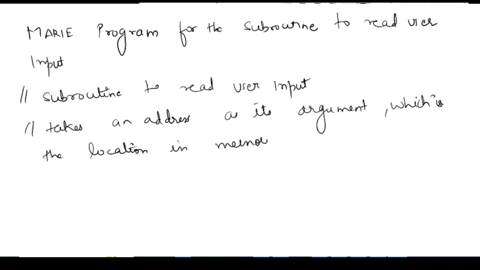 MARIE Program for the subroutine to read user
Input
// subroutine to read user Input
// takes an address as its argument, which is
the location in memor